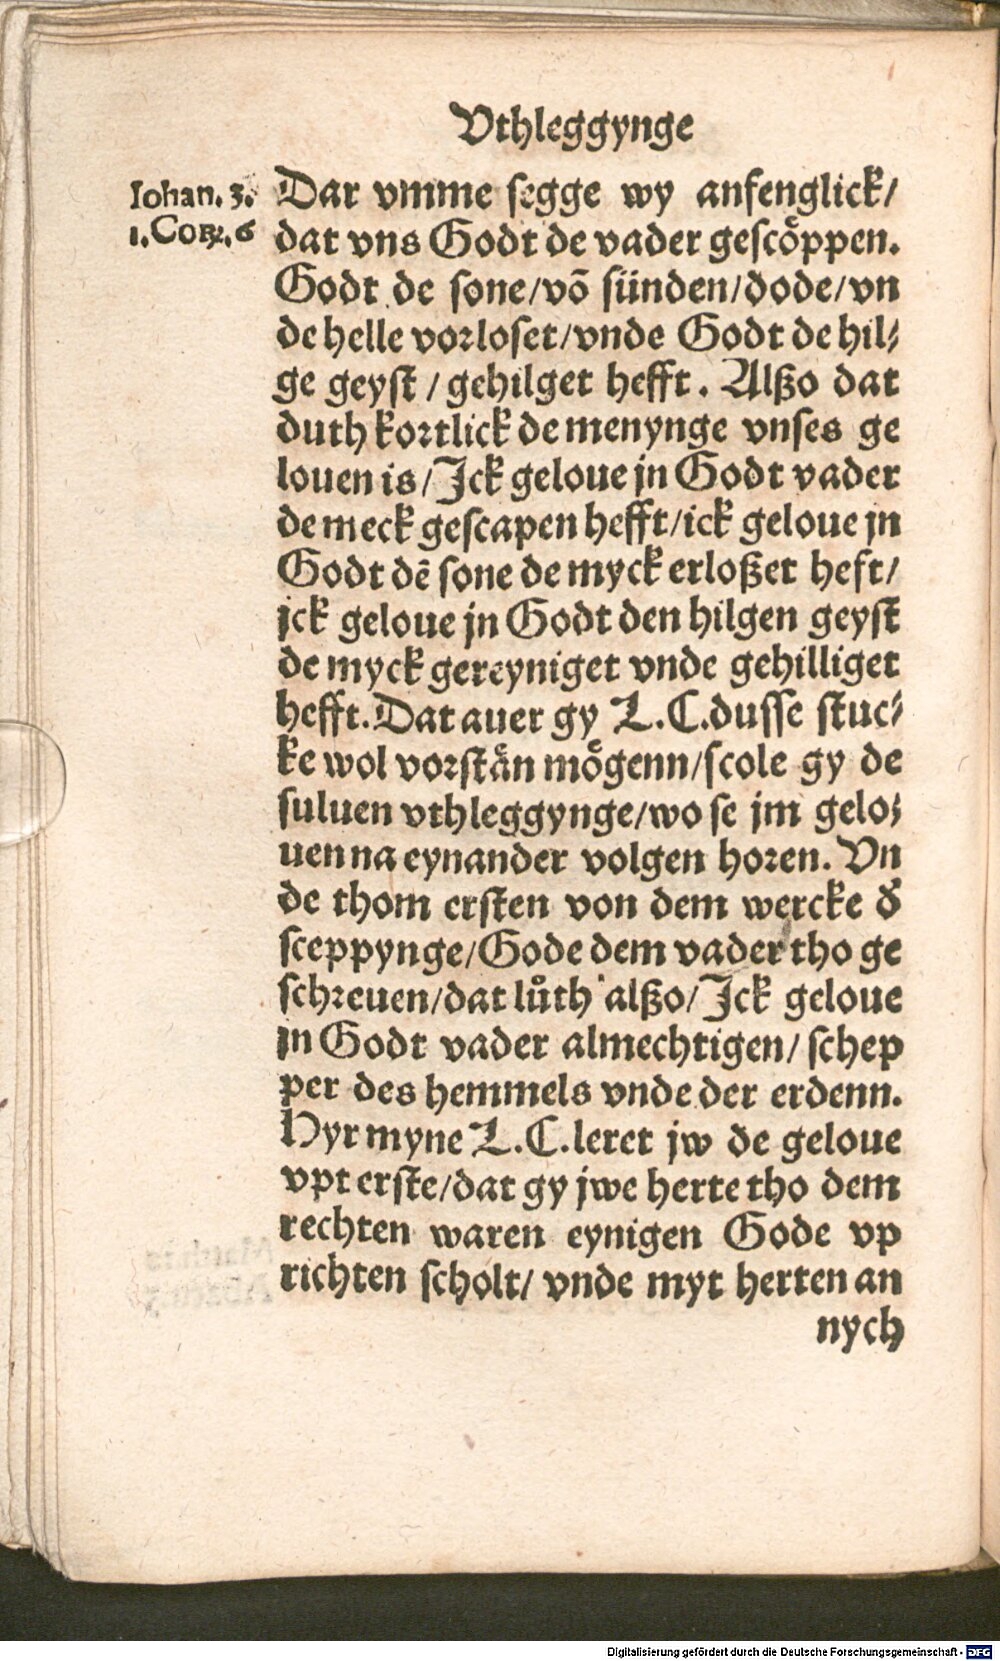 Vthleggynge
Iohan. 3.
1. Cor. 6
Dar vmme segge wy anfenglick/
dat vns Godt de vader gescöppen.
Godt de sone/võ sünden/dode/vn
de helle vorloset/vnde Godt de hil⸗
ge geyst / gehilget hefft. Alßo dat
duth kortlick de menynge vnses ge
louen is/Jck geloue jn Godt vader
de meck gescapen hefft/ick geloue jn
Godt dẽ sone de myck erloßet heft/
jck geloue jn Godt den hilgen geyst
de myck gereyniget vnde gehilliget
hefft. Dat auer gy L. C. dusse stuc⸗
ke wol vorstån mögenn/scole gy de
suluen vthleggynge/wo se jm gelo⸗
uen na eynander volgen horen. Vn
de thom ersten von dem wercke d̕
sceppynge/Gode dem vader tho ge
schreuen/dat lůth alßo/Jck geloue
jn Godt vader almechtigen/ schep
per des hemmels vnde der erdenn.
Hyr myne L. C. leret jw de geloue
vpt erste/dat gy jwe herte tho dem
rechten waren eynigen Gode vp
richten scholt/ vnde myt herten an
nych
Digitalisierung gefördert durch die Deutsche Forschungsgemeinschaft - DFG